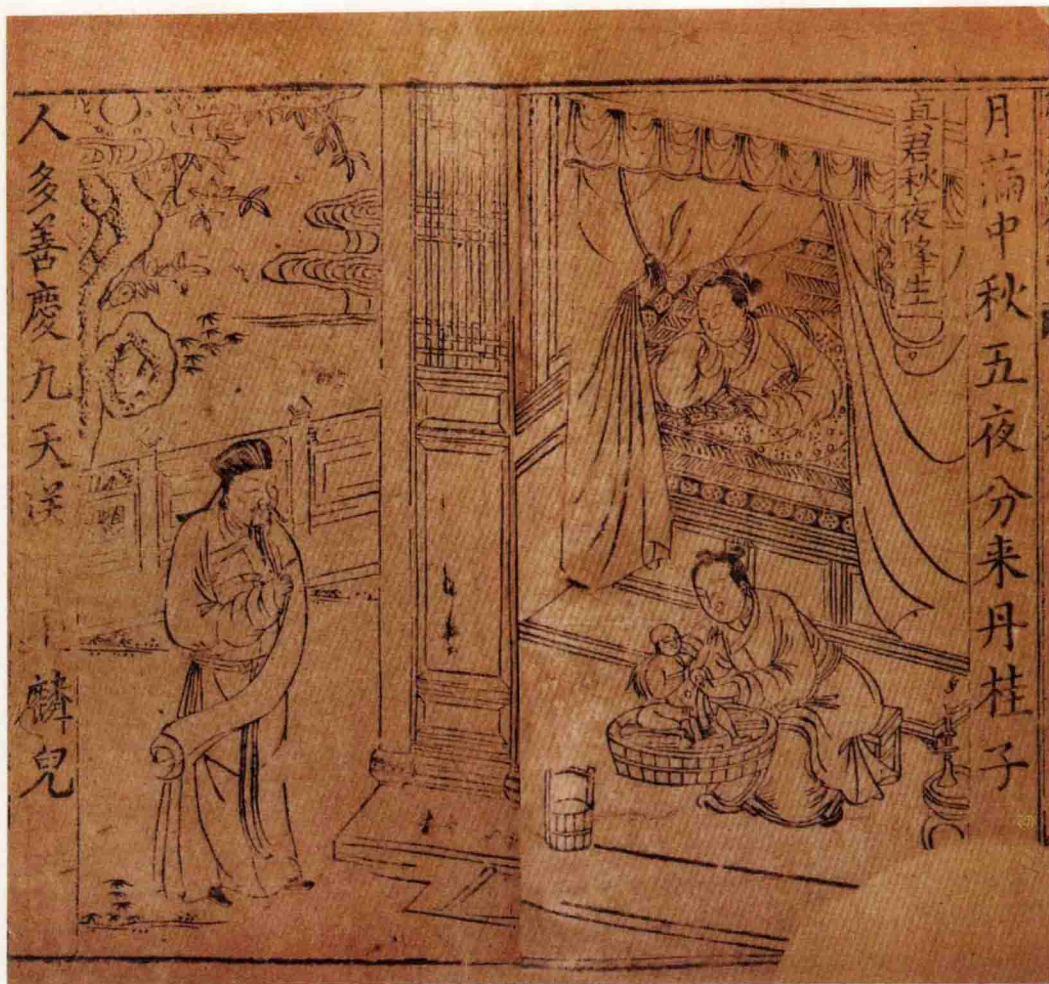 月滿中秋五夜分来丹桂子
真君秋夜降生
人多善慶九天麟兒